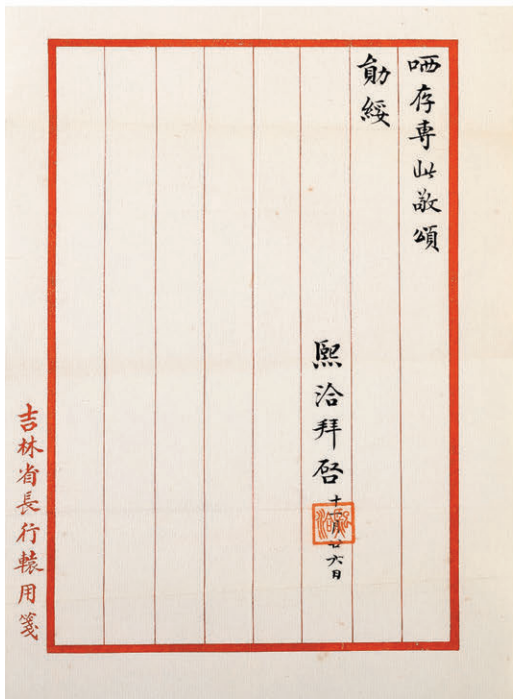 哂存専此敬頌
勛綏
熙洽拜启
十月廿六日
熙洽
吉林省長行轅用箋